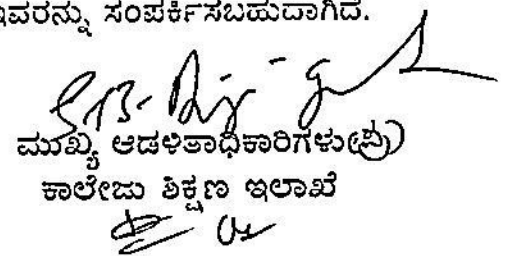 ಇವರನ್ನು ಸಂಪರ್ಕಿಸಬಹುದಾಗಿದೆ.
ಮುಖ್ಯ ಆಡಳಿತಾಧಿಕಾರಿಗಳು(ಪ್ರ)
ಕಾಲೇಜು ಶಿಕ್ಷಣ ಇಲಾಖೆ